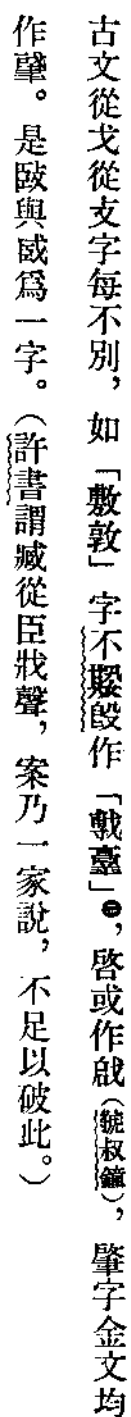 古文從戈從支字每不別，如「敷敦」字不𡢁𣪘作「尃戈𦎫」㊀，啓或作㦿（虢叔鐘），肇字金文均
作肈。是𢻃與𢦟爲一字。（許書謂臧從臣戕聲，案乃一家說，不足以破此。）